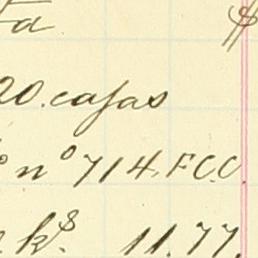 ta $
20. cajas
nº 714. F.C.C.
k.s 11.77.